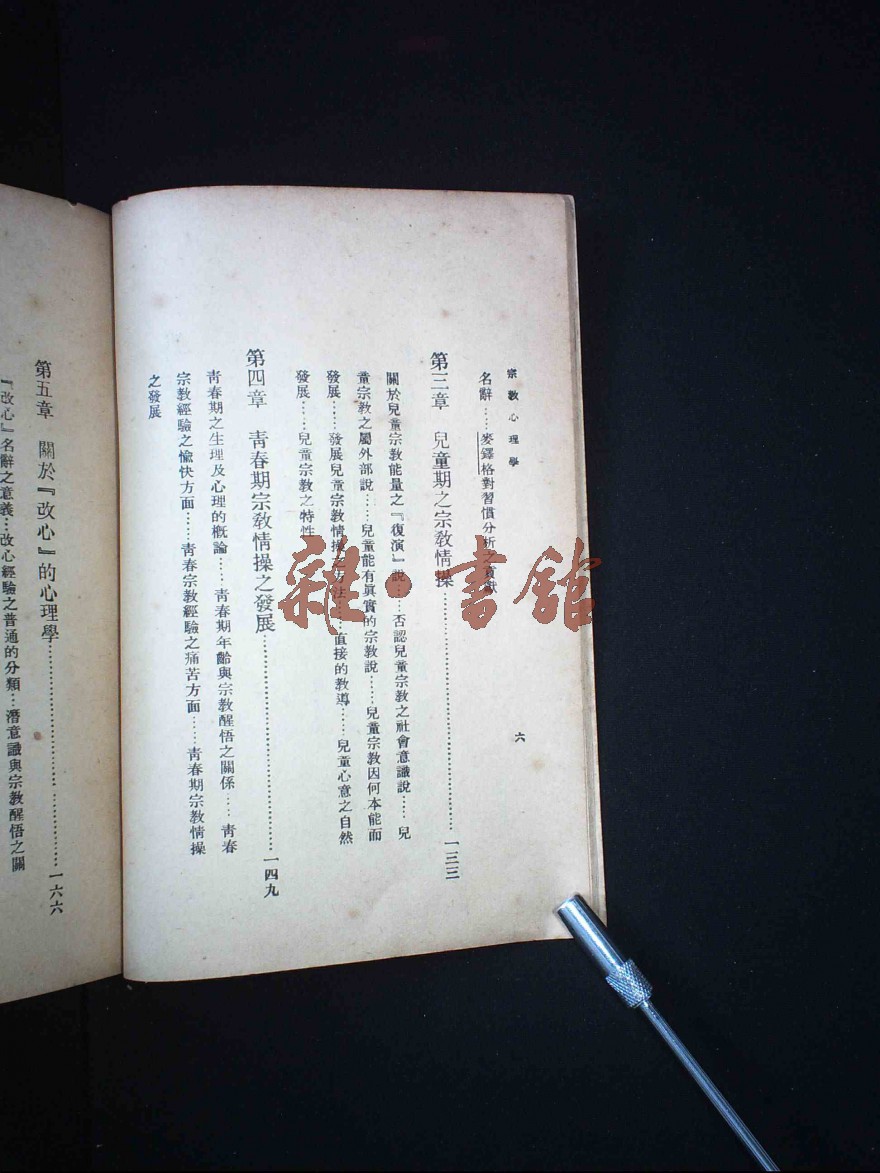 宗教心理學
六
名辭……麥鐸格對習慣分析之貢獻
第三章　兒童期之宗教情操……一三三
關於兒童宗教能量之『復演』說……否認兒童宗教之社會意識說……兒
童宗教之屬外部說……兒童能有眞實的宗教說……兒童宗教因何本能而
發展……發展兒童宗教情操之方法……直接的教導……兒童心意之自然
發展……兒童宗教之特性
第四章　靑春期宗教情操之發展……一四九
靑春期之生理及心理的槪論……靑春期年齡與宗教醒悟之關係……靑春
宗教經驗之愉快方面……靑春宗教經驗之痛苦方面……靑春期宗教情操
之發展
第五章　關於『改心』的心理學……一六六
『改心』名辭之意義…改心經驗之普通的分類…潛意識與宗教醒悟之關
雜·書館